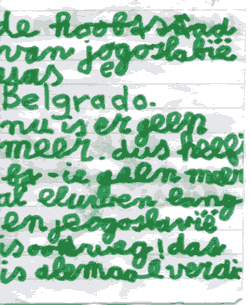 de hoobsstad
van jogoslatië
was
Belgrado.
nu is er geen
meer. dus heef
geen meer
al eluwen lang
en jeogoslavië
is weg! das
is alemaal verdi